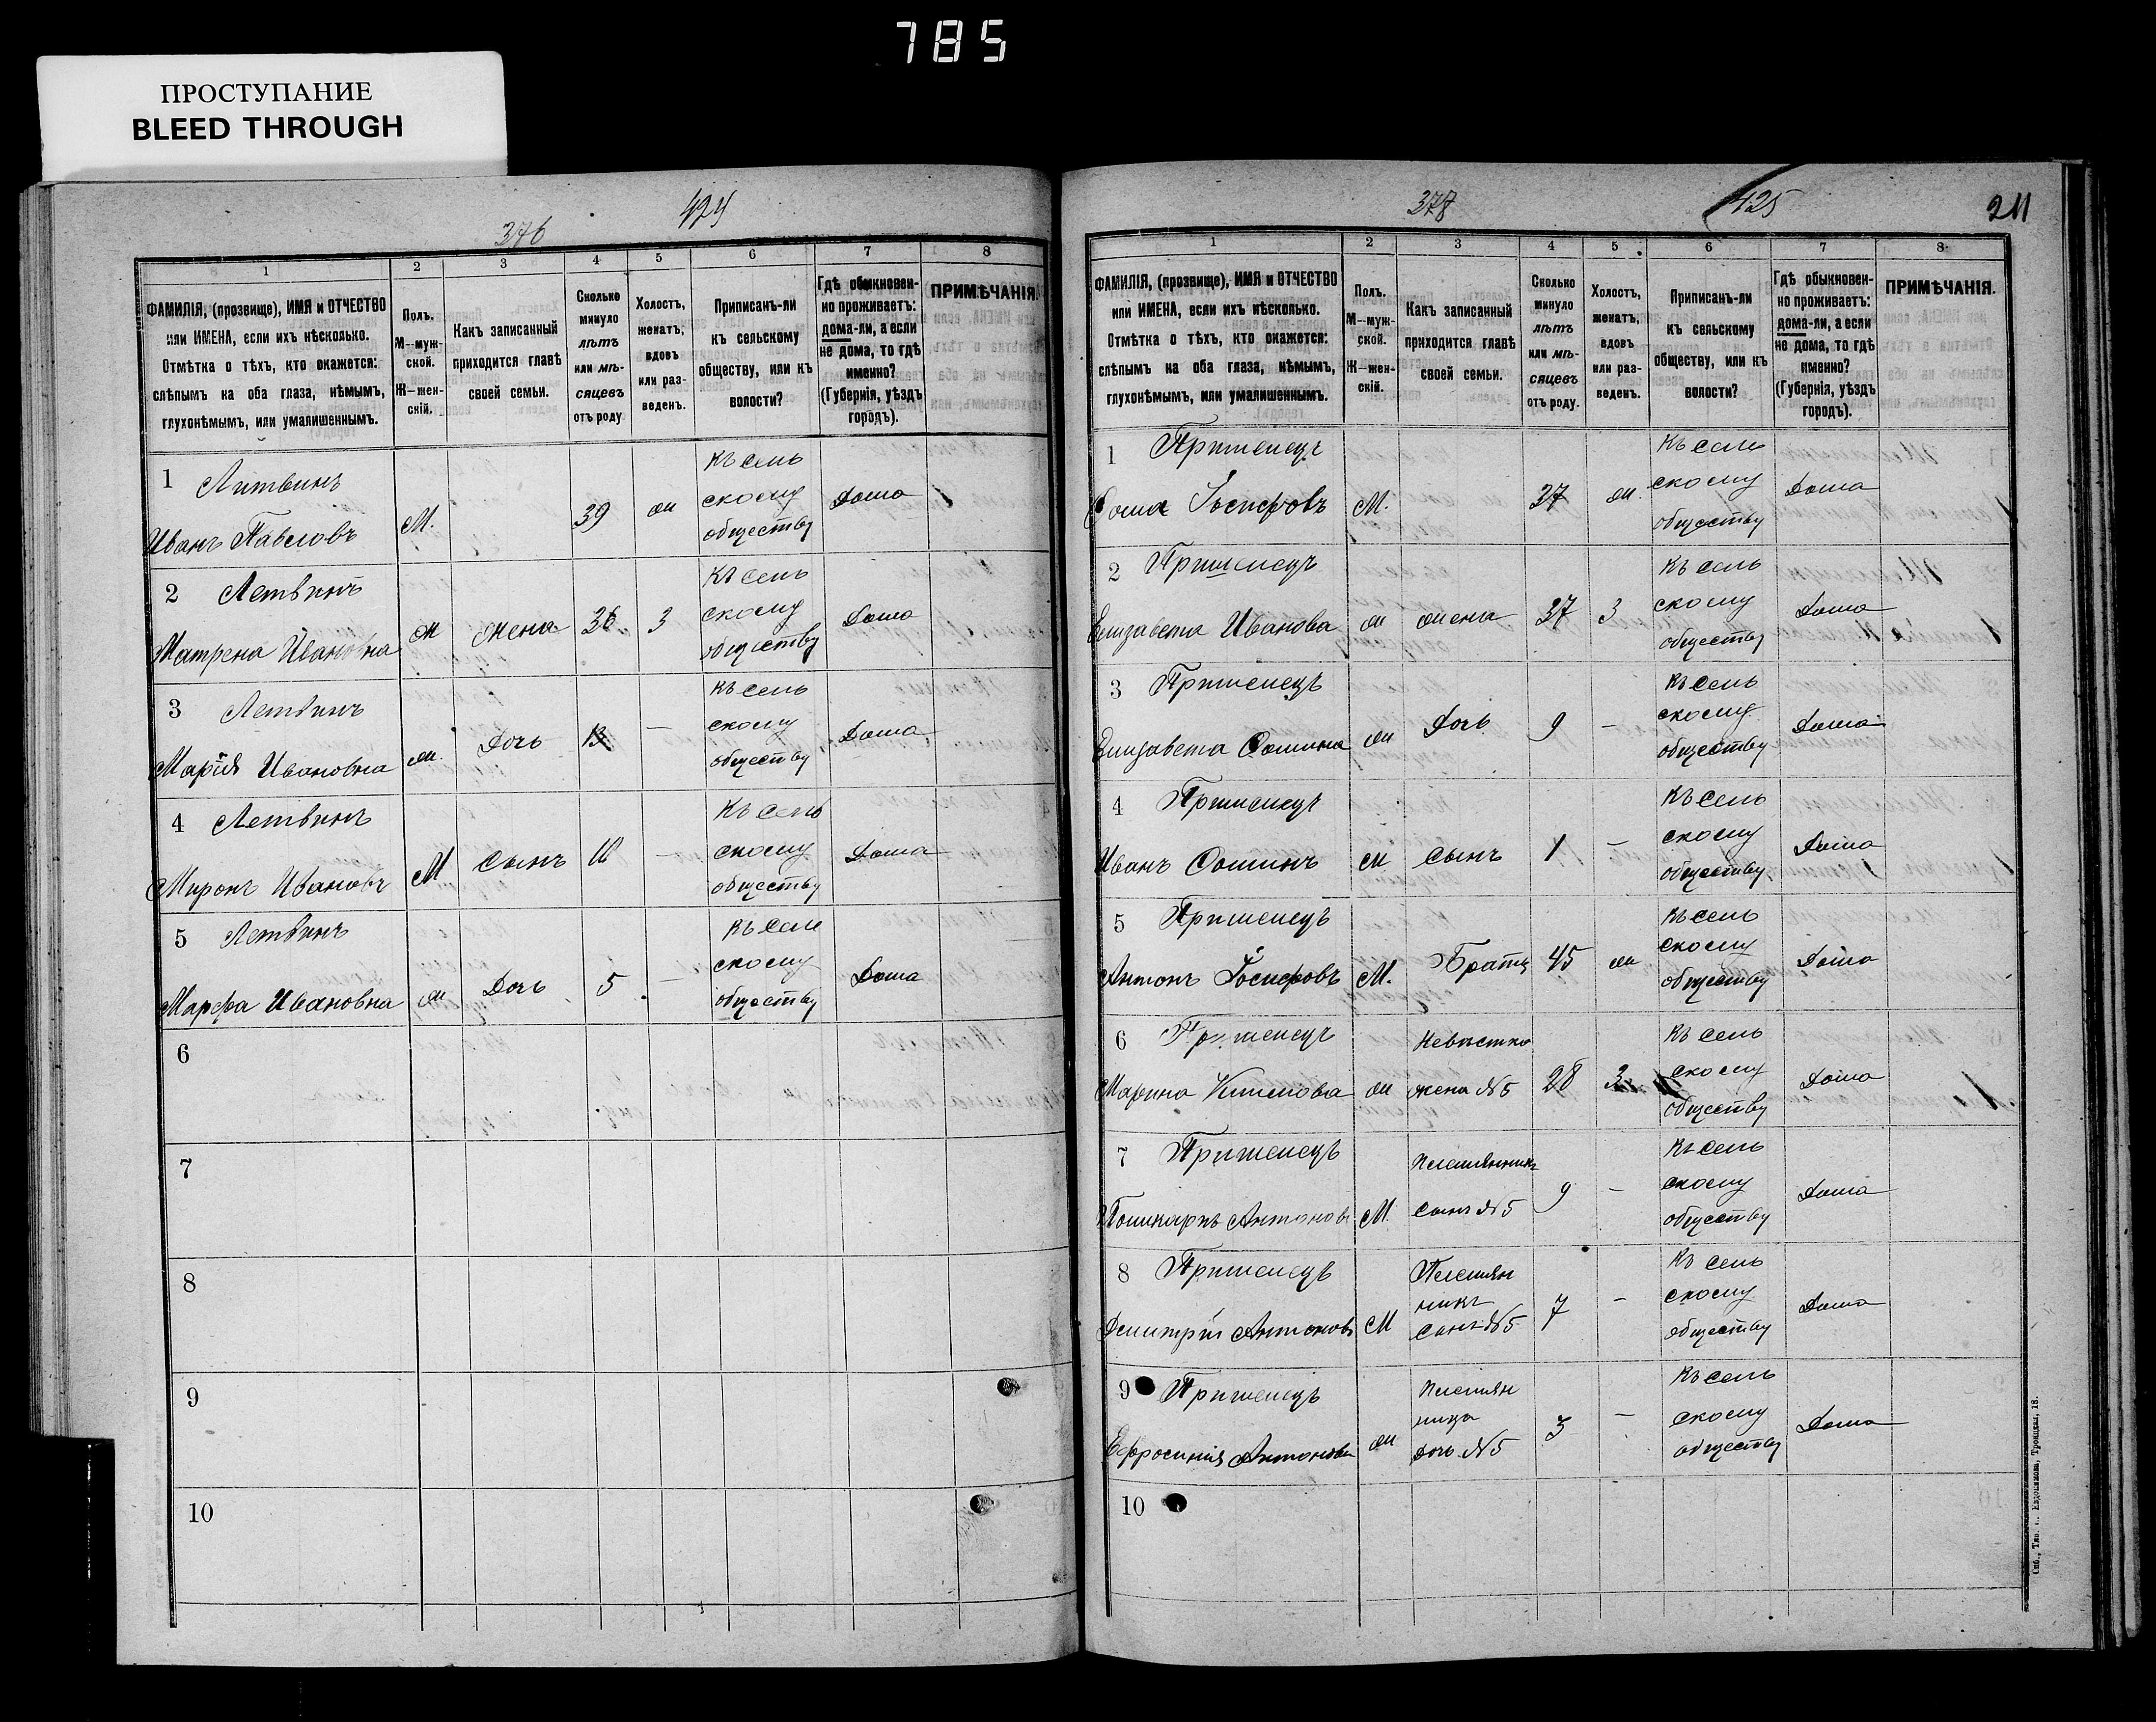 785
ПРОСТУПАНИЕ
BLEED THROUGH
424
376
1 2 3 4 5 6 7 8
ФАМИЛІЯ, (прозвище), ИМЯ и ОТЧЕСТВО
или ИМЕНА, если ихъ нѣсколько.
Отмѣтка о тѣхъ, кто окажется:
слѣпымъ на оба глаза, нѣмымъ,
глухонѣмымъ, или умалишеннымъ.
Полъ.
М—муж-
ской.
Ж—жен-
скій.
Какъ записанный
приходится главѣ
своей семьи.
Сколько
минуло
лѣтъ
или мѣ-
сяцевъ
отъ роду
Холостъ,
женатъ,
вдовъ
или раз-
веденъ.
Приписанъ-ли
къ сельскому
обществу, или къ
волости?
Гдѣ обыкновен-
но проживаетъ:
дома-ли, а если
не дома, то гдѣ
именно?
(Губернія, уѣздъ
городъ).
ПРИМѢЧАНІЯ.
1 Литвинъ
Иванъ Павловъ М. 39 ж
Къ сель
скому
обществу
Дома
2 Летвинъ
Матрена Ивановна ж жена 36 З
Къ сель
скому
обществу
Дома
3 Летвинъ
Марія Ивановна ж. Дочь 13 —
Къ сель
скому
обществу
Дома
4 Летвинъ
Миронъ Ивановъ М Сынъ —
Къ сель
скому
обществу
Дома
5 Летвинъ
Марфа Ивановна ж Дочь 5 —
Къ селе
скому
обществу
Дома
6
7
8
9
10
378
425
211
1 2 3 4 5 6 7 8
ФАМИЛІЯ, (прозвище), ИМЯ и ОТЧЕСТВО
или ИМЕНА, если ихъ нѣсколько.
Отмѣтка о тѣхъ, кто окажется:
слѣпымъ на оба глаза, нѣмымъ,
глухонѣмымъ, или умалишеннымъ.
Полъ.
М—муж-
ской.
Ж—жен-
скій.
Какъ записанный
приходится главѣ
своей семьи.
Сколько
минуло
лѣтъ
или мѣ-
сяцевъ
отъ роду.
Холостъ,
женатъ,
вдовъ
или раз-
веденъ.
Приписанъ-ли
къ сельскому
обществу, или къ
волости?
Гдѣ обыкновен-
но проживаетъ:
дома-ли, а если
не дома, то гдѣ
именно?
(Губернія, уѣздъ
городъ).
ПРИМѢЧАНІЯ.
1
Іосифовъ М. 37 ж.
Къ селе
скому
обществу
Дома
2
Елизавета Иванова ж жена 37 З
Къ сель
скому
обществу
Дома
3
Елизавета Фомина ж Дочь 9 —
Къ сель
скому
обществу
Дома
4
Иванъ Фоминъ М Сынъ 1 —
Къ сель
скому
обществу
Дома
5
Антонъ Іосифовъ М. Братъ 45 ж
Къ сель
скому
обществу
Дома
6
Невѣстка
Марина ж жена №5 28 З
Къ сель
скому
обществу
Дома
7
Племянникъ
Поликарпъ Антоновъ М. Сынъ №5 9 —
Къ сель
скому
обществу
Дома
8
Племян
никъ
Дмитрій Антоновъ М Сынъ №5 7 —
Къ сель
скому
обществу
Дома
9
Племян
ница
Ефросинія Антонова ж дочь №5 3 —
Къ сель
скому
обществу
Дома
10